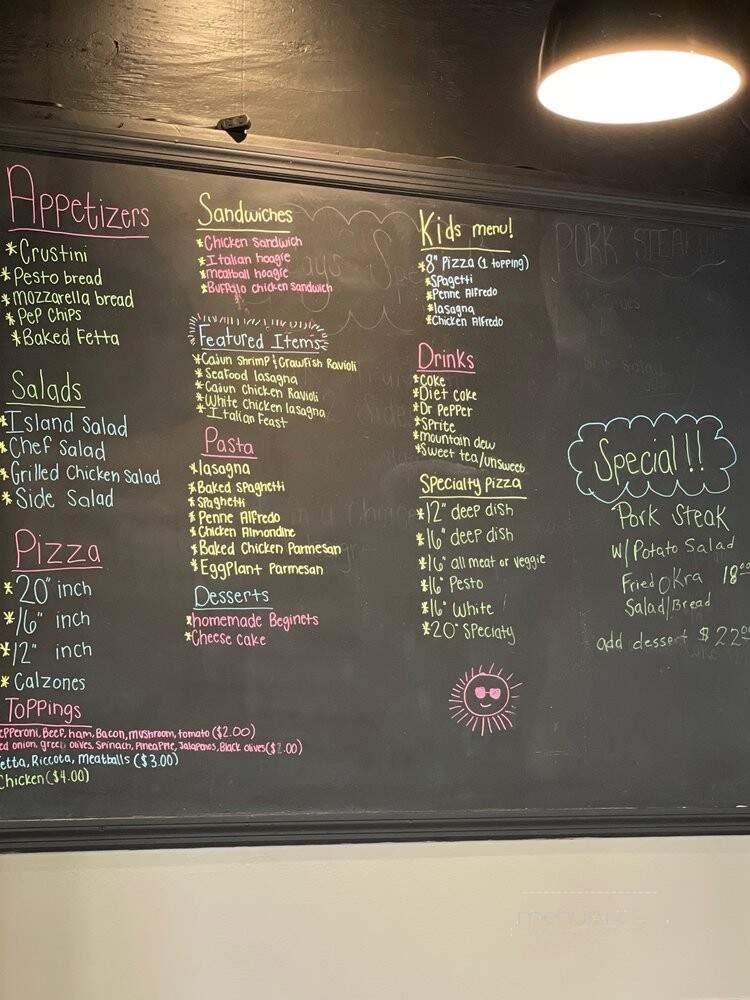 Appetizers
*Crustini
*Pesto bread
*mozzarella bread
*Pep Chips
*Baked Fetta
Salads
*Island Salad
*Chef Salad
*Grilled Chicken Salad
*Side Salad
Pizza
*20" inch
*16" inch
*12" inch
*Calzones
Toppings
epperoni, Beef, ham, Bacon, mushroom, tomato ($2.00)
ed onion, green olives, Spinach, Pineapple, Jalapenos, Black olives ($2.00)
etta, Riccota, meatballs ($3.00)
Chicken ($4.00)
Sandwiches
*Chicken Sandwich
*Italian hoagie
*meatball hoagie
*Buffalo chicken sandwich
Featured Items
*Cajun Shrimp & Crawfish Ravioli
*Seafood lasagna
*Cajun Chicken Ravioli
*White Chicken lasagna
*Italian Feast
Pasta
*lasagna
*Baked Spaghetti
*Spaghetti
*Penne Alfredo
*Chicken Almondine
*Baked Chicken Parmesan
*EggPlant Parmesan
Desserts
*homemade Beginets
*Cheese cake
Kids menu!
*8" Pizza (1 topping)
*Spagetti
*Penne Alfredo
*lasagna
*Chicken Alfredo
Drinks
*Coke
*Diet Coke
*Dr Pepper
*Sprite
*mountain dew
*Sweet tea/unsweet
Specialty Pizza
*12" deep dish
*16" deep dish
*16" all meat or veggie
*16" Pesto
*16" White
*20" Specialty
PORK STEAK
Special!!
Pork Steak
W/Potato Salad
Fried Okra 18.00
Salad/Bread
add dessert $22.00